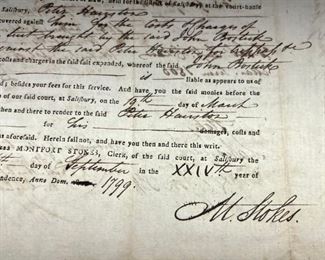 at the court-house
Peter Hairston
him by the
suit brought by the said John Bostick
against the said Peter Hairston for
costs and charges in the said suit expended, whereof the said John Bostick
is liable as appears to us of
; besides your fees for this service. And have you the said monies before the
of our said court, at Salisbury, on the 19th day of March
then and there to render to the said Peter Hairston
for his damages, costs and
as aforesaid. Herein fail not, and have you then and there this writ.
MONTFORT STOKES, Clerk, of the said court, at Salisbury the
day of September in the XXIVth year of
pendence, Anno Dom. 1799.
M. Stokes.